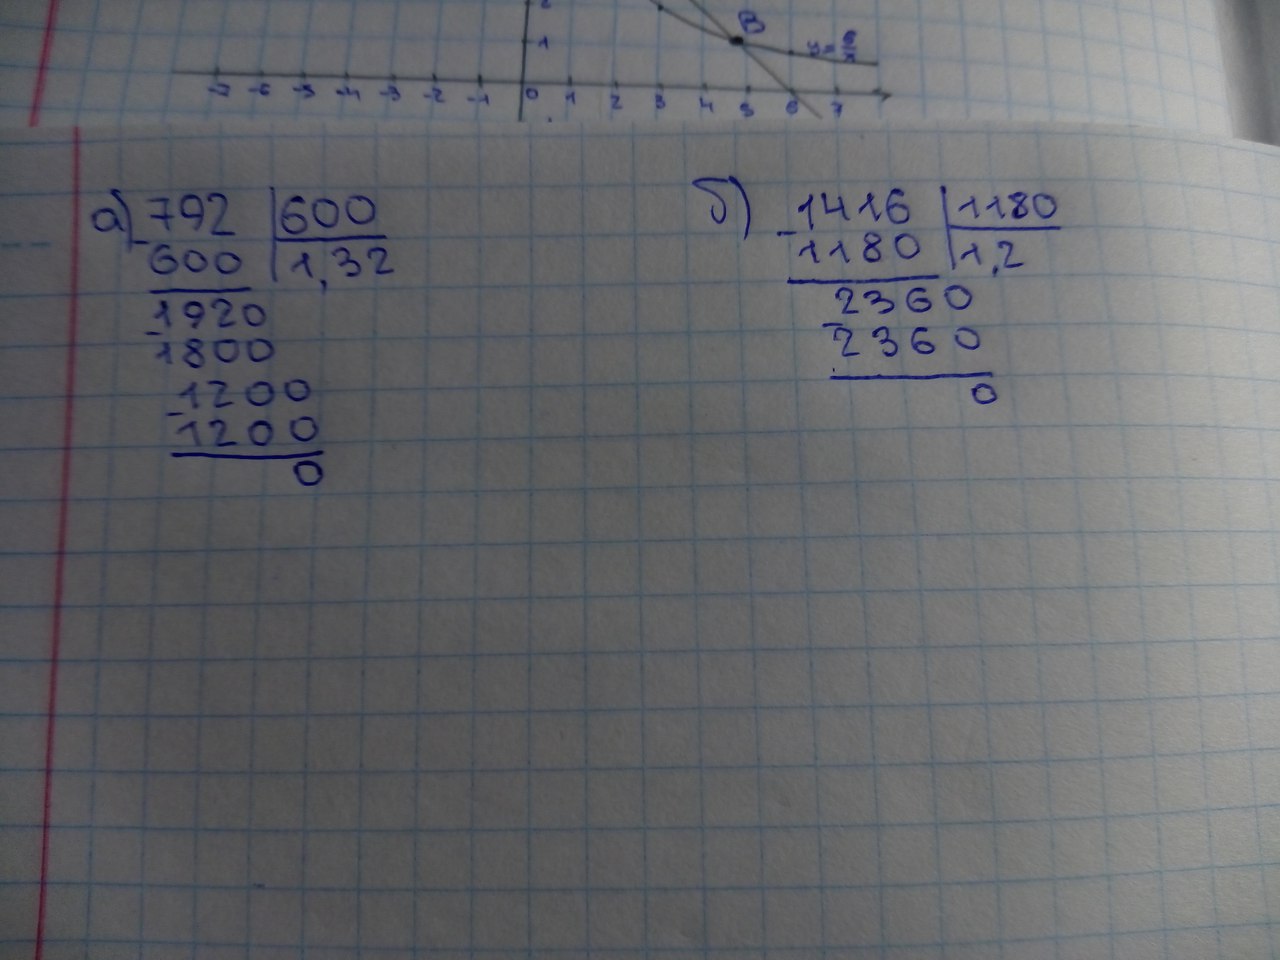 2
1
B
y = 6/x
-7 -6 -5 -4 -3 -2 -1 0 1 2 3 4 5 6 7
а) 792 600
- 600 1,32
1920
- 1800
1200
- 1200
0
б) 1416 1180
- 1180 1,2
2360
- 2360
0